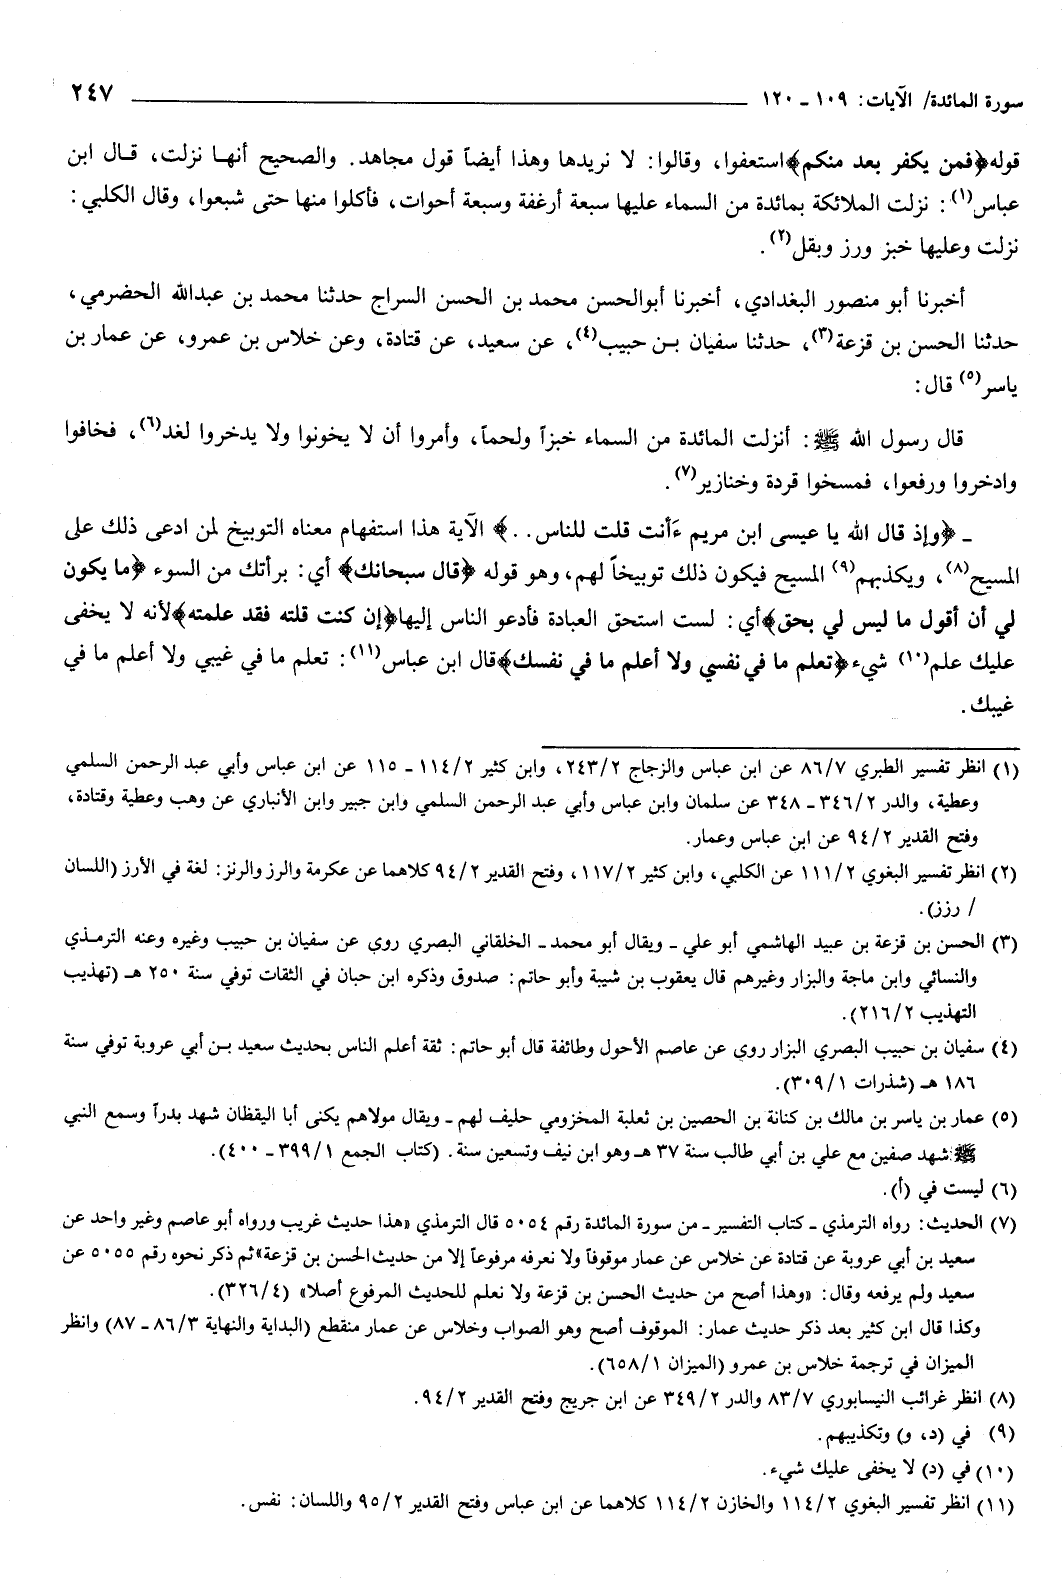 سورة المائدة/ الآيات: ١٠٩ ـ ١٢٠ ٢٤٧
قوله﴿فمن يكفر بعد منكم﴾استعفوا، وقالوا: لا نريدها وهذا أيضاً قول مجاهد. والصحيح أنها نزلت، قال ابن
عباس(١): نزلت الملائكة بمائدة من السماء عليها سبعة أرغفة وسبعة أحوات، فأكلوا منها حتى شبعوا، وقال الكلبي:
نزلت وعليها خبز ورز وبقل(٢).
أخبرنا أبو منصور البغدادي، أخبرنا أبوالحسن محمد بن الحسن السراج حدثنا محمد بن عبدالله الحضرمي،
حدثنا الحسن بن قزعة(٣)، حدثنا سفيان بن حبيب(٤)، عن سعيد، عن قتادة، وعن خلاس بن عمرو، عن عمار بن
ياسر(٥) قال:
قال رسول الله ﷺ: أنزلت المائدة من السماء خبزاً ولحماً، وأمروا أن لا يخونوا ولا يدخروا لغد(٦)، فخافوا
وادخروا ورفعوا، فمسخوا قردة وخنازير(٧).
ـ ﴿وإذ قال الله يا عيسى ابن مريم ءَأنت قلت للناس..﴾ الآية هذا استفهام معناه التوبيخ لمن ادعى ذلك على
المسيح(٨)، ويكذبهم(٩) المسيح فيكون ذلك توبيخاً لهم، وهو قوله ﴿قال سبحانك﴾ أي: برأتك من السوء ﴿ما يكون
لي أن أقول ما ليس لي بحق﴾أي: لست استحق العبادة فأدعو الناس إليها﴿إن كنت قلته فقد علمته﴾لأنه لا يخفى
عليك علم(١٠) شيء﴿تعلم ما في نفسي ولا أعلم ما في نفسك﴾قال ابن عباس(١١): تعلم ما في غيبي ولا أعلم ما في
غيبك.
(١) انظر تفسير الطبري ٨٦/٧ عن ابن عباس والزجاج ٢٤٣/٢، وابن كثير ١١٤/٢ ـ ١١٥ عن ابن عباس وأبي عبد الرحمن السلمي
وعطية، والدر ٣٤٦/٢ ـ ٣٤٨ عن سلمان وابن عباس وأبي عبد الرحمن السلمي وابن جبير وابن الأنباري عن وهب وعطية وقتادة،
وفتح القدير ٩٤/٢ عن ابن عباس وعمار.
(٢) انظر تفسير البغوي ١١١/٢ عن الكلبي، وابن كثير ١١٧/٢، وفتح القدير ٩٤/٢ كلاهما عن عكرمة والرز والرنز: لغة في الأرز (اللسان
/ رزز).
(٣) الحسن بن قزعة بن عبيد الهاشمي أبو علي ـ ويقال أبو محمد ـ الخلقاني البصري روي عن سفيان بن حبيب وغيره وعنه الترمذي
والنسائي وابن ماجة والبزار وغيرهم قال يعقوب بن شيبة وأبو حاتم: صدوق وذكره ابن حبان في الثقات توفي سنة ٢٥٠ هـ (تهذيب
التهذيب ٢١٦/٢).
(٤) سفيان بن حبيب البصري البزار روي عن عاصم الأحول وطائفة قال أبو حاتم: ثقة أعلم الناس بحديث سعيد بن أبي عروبة توفي سنة
١٨٦ هـ (شذرات ٣٠٩/١).
(٥) عمار بن ياسر بن مالك بن كنانة بن الحصين بن ثعلبة المخزومي حليف لهم ـ ويقال مولاهم يكنى أبا اليقظان شهد بدراً وسمع النبي
ﷺ شهد صفين مع علي بن أبي طالب سنة ٣٧ هـ وهو ابن نيف وتسعين سنة. (كتاب الجمع ٣٩٩/١ ـ ٤٠٠).
(٦) ليست في (أ).
(٧) الحديث: رواه الترمذي ـ كتاب التفسير ـ من سورة المائدة رقم ٥٠٥٤ قال الترمذي «هذا حديث غريب ورواه أبو عاصم وغير واحد عن
سعيد بن أبي عروبة عن قتادة عن خلاس عن عمار موقوفاً ولا نعرفه مرفوعاً إلا من حديث الحسن بن قزعة» ثم ذكر نحوه رقم ٥٠٥٥ عن
سعيد ولم يرفعه وقال: «وهذا أصح من حديث الحسن بن قزعة ولا نعلم للحديث المرفوع أصلا» (٣٢٦/٤).
وكذا قال ابن كثير بعد ذكر حديث عمار: الموقوف أصح وهو الصواب وخلاس عن عمار منقطع (البداية والنهاية ٨٦/٣ ـ ٨٧) وانظر
الميزان في ترجمة خلاس بن عمرو (الميزان ٦٥٨/١).
(٨) انظر غرائب النيسابوري ٨٣/٧ والدر ٣٤٩/٢ عن ابن جريج وفتح القدير ٩٤/٢.
(٩) في (د، و) وتكذيبهم.
(١٠) في (د) لا يخفى عليك شيء.
(١١) انظر تفسير البغوي ١١٤/٢ والخازن ١١٤/٢ كلاهما عن ابن عباس وفتح القدير ٩٥/٢ واللسان: نفس.